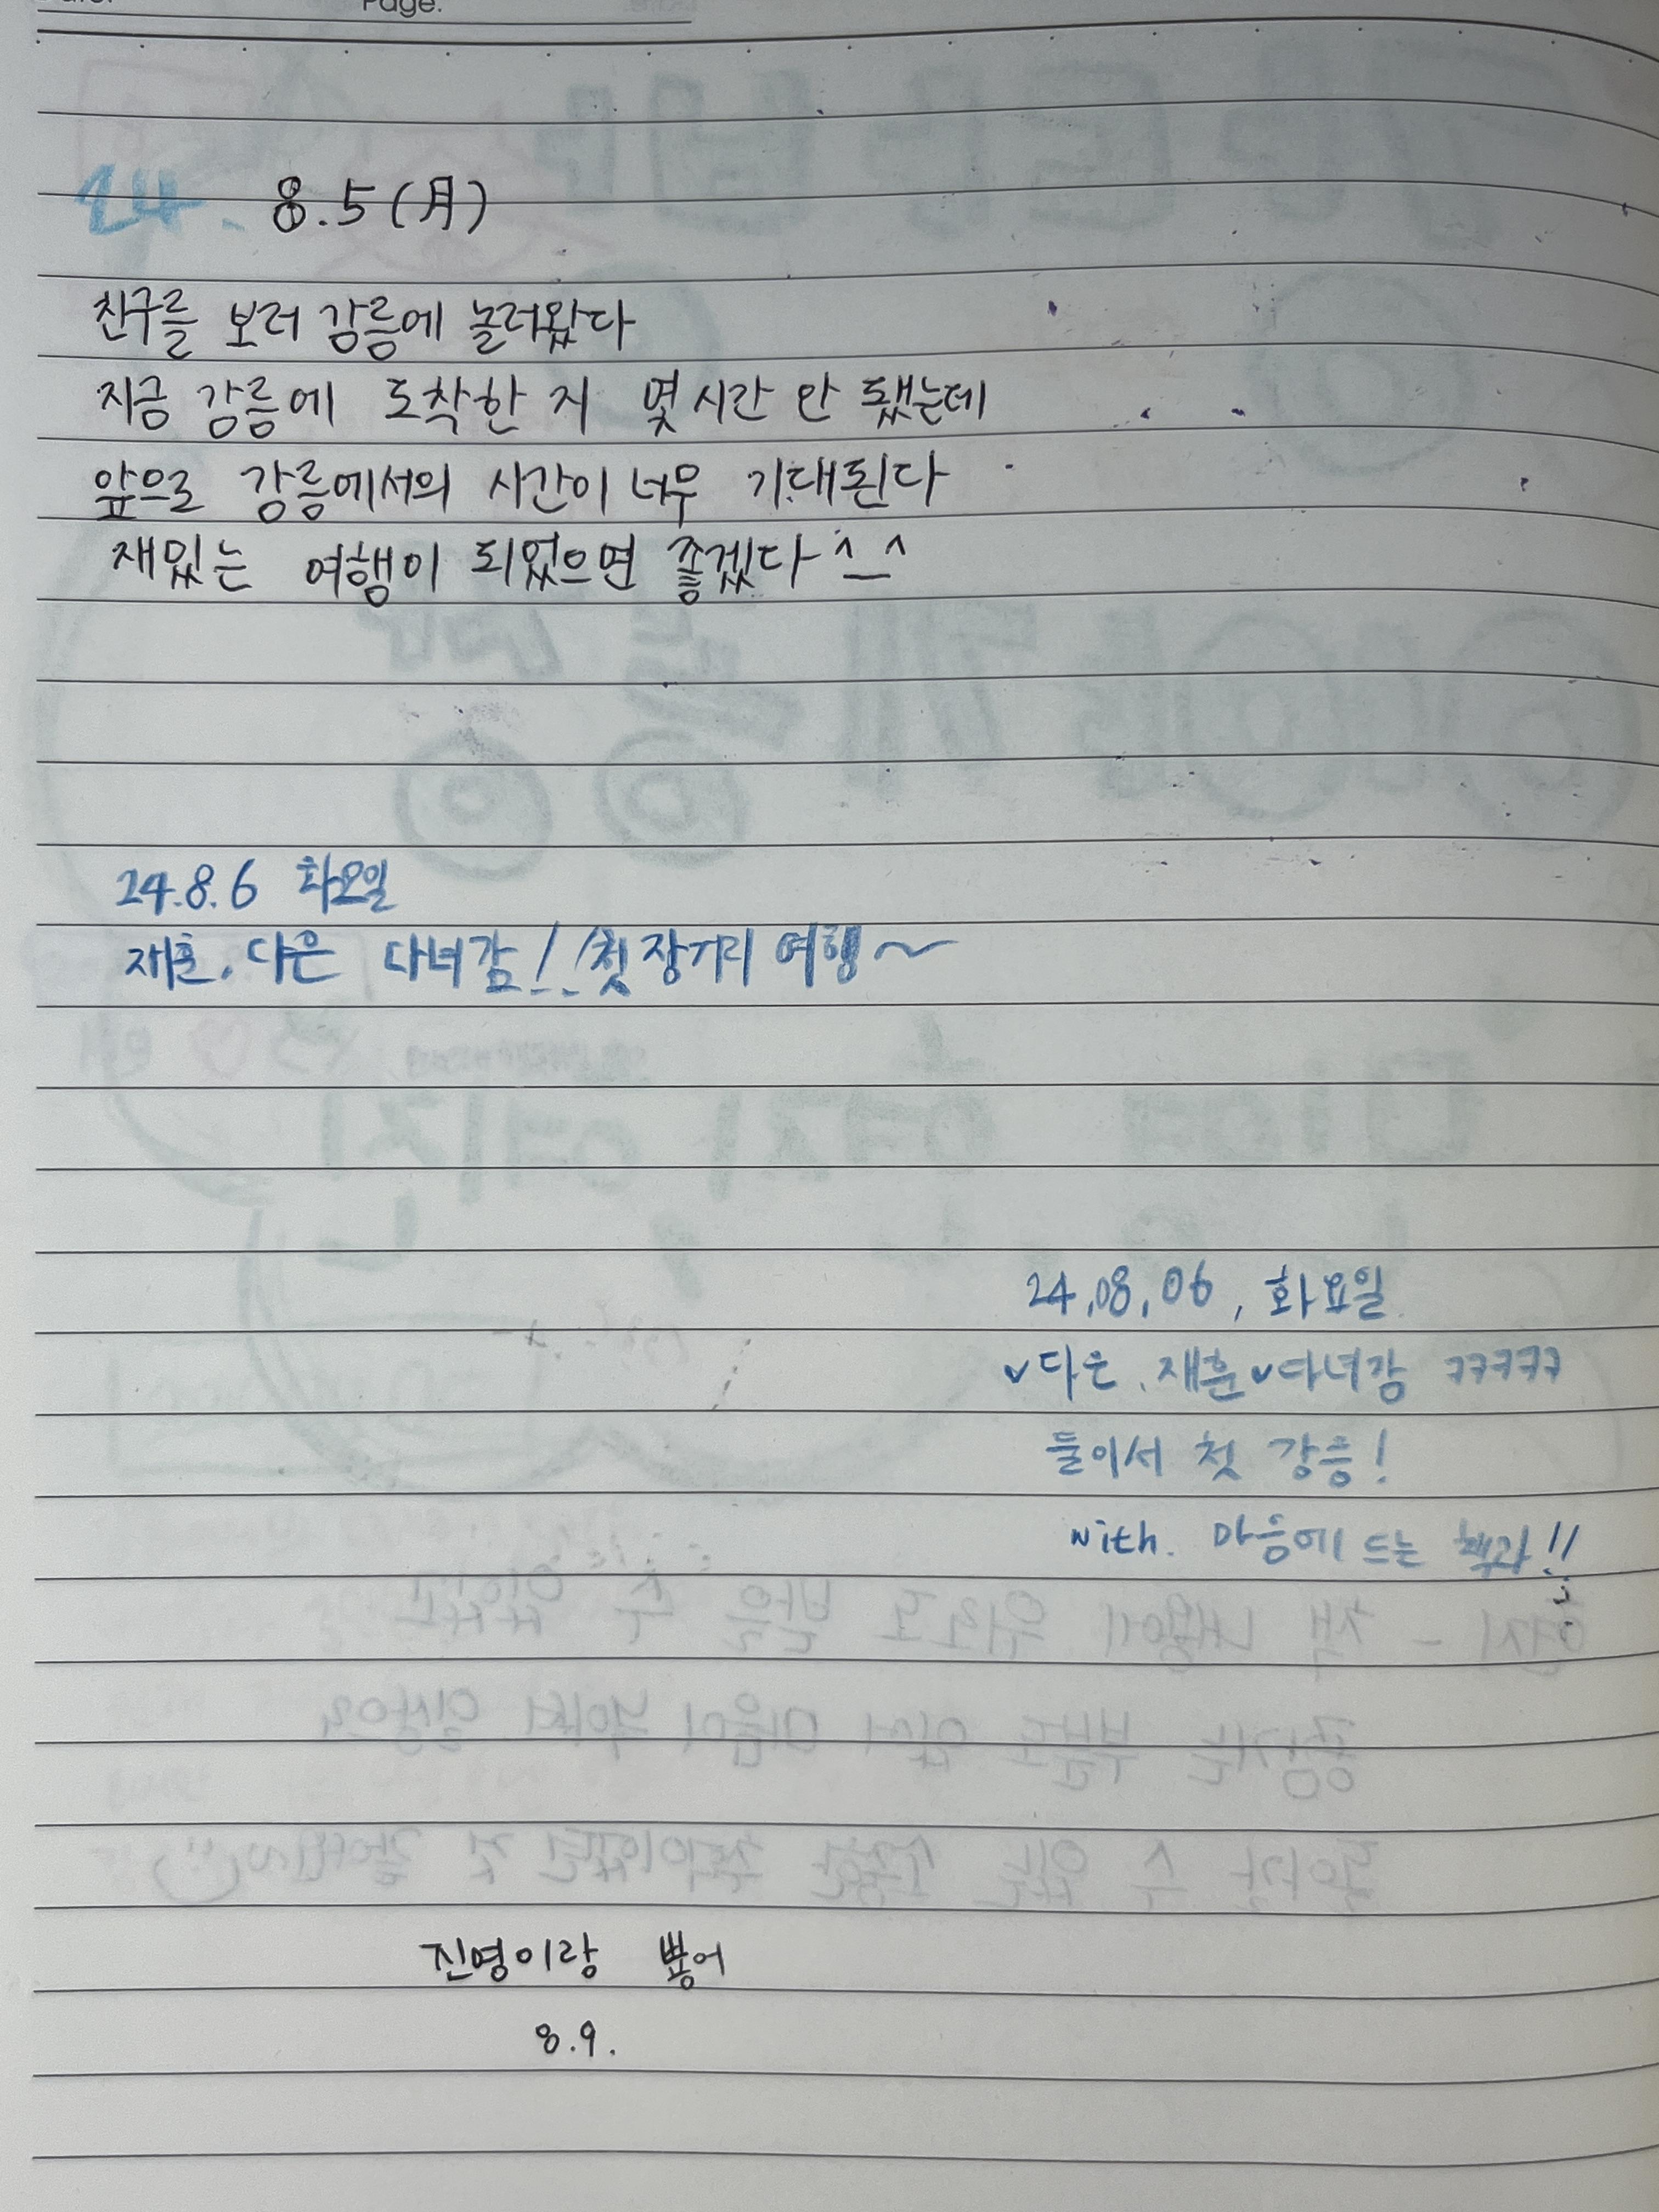 Page:
24. 8.5(月)
친구를 보러 강릉에 놀러왔다
지금 강릉에 도착한 지 몇시간 안 됐는데
앞으로 강릉에서의 시간이 너무 기대된다
재밌는 여행이 되었으면 좋겠다^_^
24.8.6 화요일
재훈. 다은 다녀감!! 첫 장거리 여행~
24.08.06, 화요일
✓다은. 재훈✓다녀감 ㅋㅋㅋㅋㅋ
둘이서 첫 강릉!
with. 마음에 드는 책과!!
진영이랑
8.9.